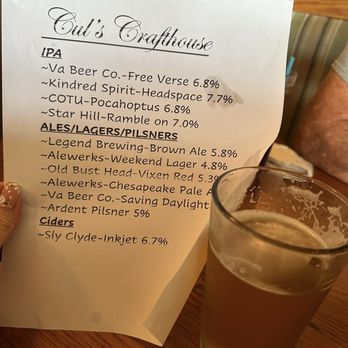 Cul's Crafthouse
IPA
~Va Beer Co.-Free Verse 6.8%
~Kindred Spirit-Headspace 7.7%
~COTU-Pocahoptus 6.8%
~Star Hill-Ramble on 7.0%
ALES/LAGERS/PILSNERS
~Legend Brewing-Brown Ale 5.8%
~Alewerks-Weekend Lager 4.8%
~Old Bust Head-Vixen Red 5.3%
~Alewerks-Chesapeake Pale A
~Va Beer Co.-Saving Daylight
~Ardent Pilsner 5%
Ciders
~Sly Clyde-Inkjet 6.7%